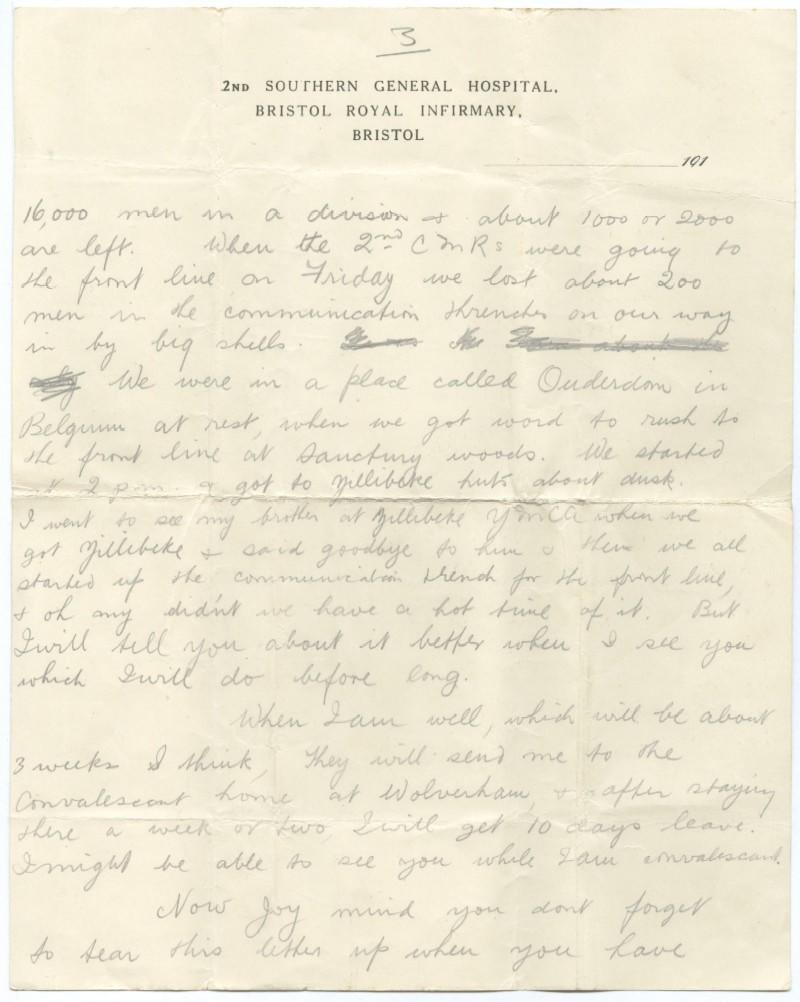 3
2ND SOUTHERN GENERAL HOSPITAL,
BRISTOL ROYAL INFIRMARY,
BRISTOL
191
16,000 men in a division & about 1000 or 2000
are left. When the 2nd C M Rs were going to
the front line on Friday we lost about 200
men in the communication threnches on our way
in by big shells.
We were in a place called Ouderdom in
Belgium at rest, when we got word to rush to
the front line at Sanctury woods. We started
at 2 p.m. & got to Zillibeke huts about dusk.
I went to see my brother at Zillibeke YMCA when we
got Zillibeke & said goodbye to him & then we all
started up the communication trench for the front line,
& oh my didn't we have a hot time of it. But
I will tell you about it better when I see you
which I will do before long.
When I am well, which will be about
3 weeks I think, They will send me to the
Convalescant home at Wolverham, & after staying
there a week or two, I will get 10 days leave.
I might be able to see you while I am convalescant.
Now Joy mind you dont forget
to tear this letter up when you have